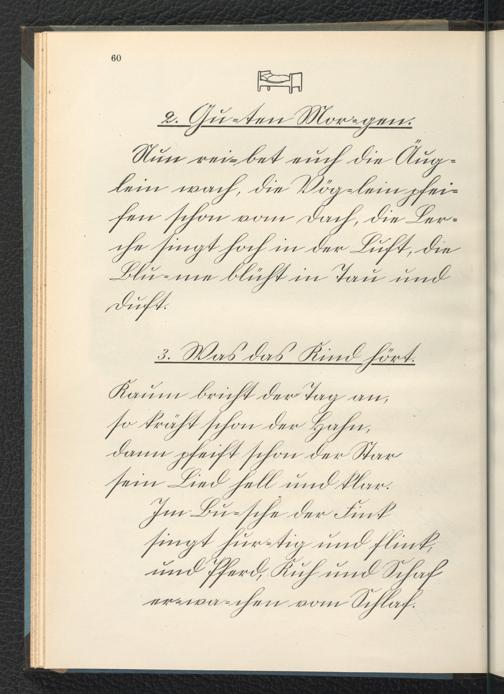 60
2. Gu-ten Mor-gen.
Nun rei-bet euch die Äug-
lein wach, die Vög-lein pfei-
fen schon vom Dach, die Ler-
che singt hoch in der Luft, die
Blu-me blüht in Tau und
Duft.
3. Was das Kind hört.
Kaum bricht der Tag an,
so kräht schon der Hahn,
dann pfeift schon der Star
sein Lied hell und klar.
Im Bu-sche der Fink
singt hur-tig und flink,
und Pferd, Kuh und Schaf
er-wa-chen vom Schlaf.